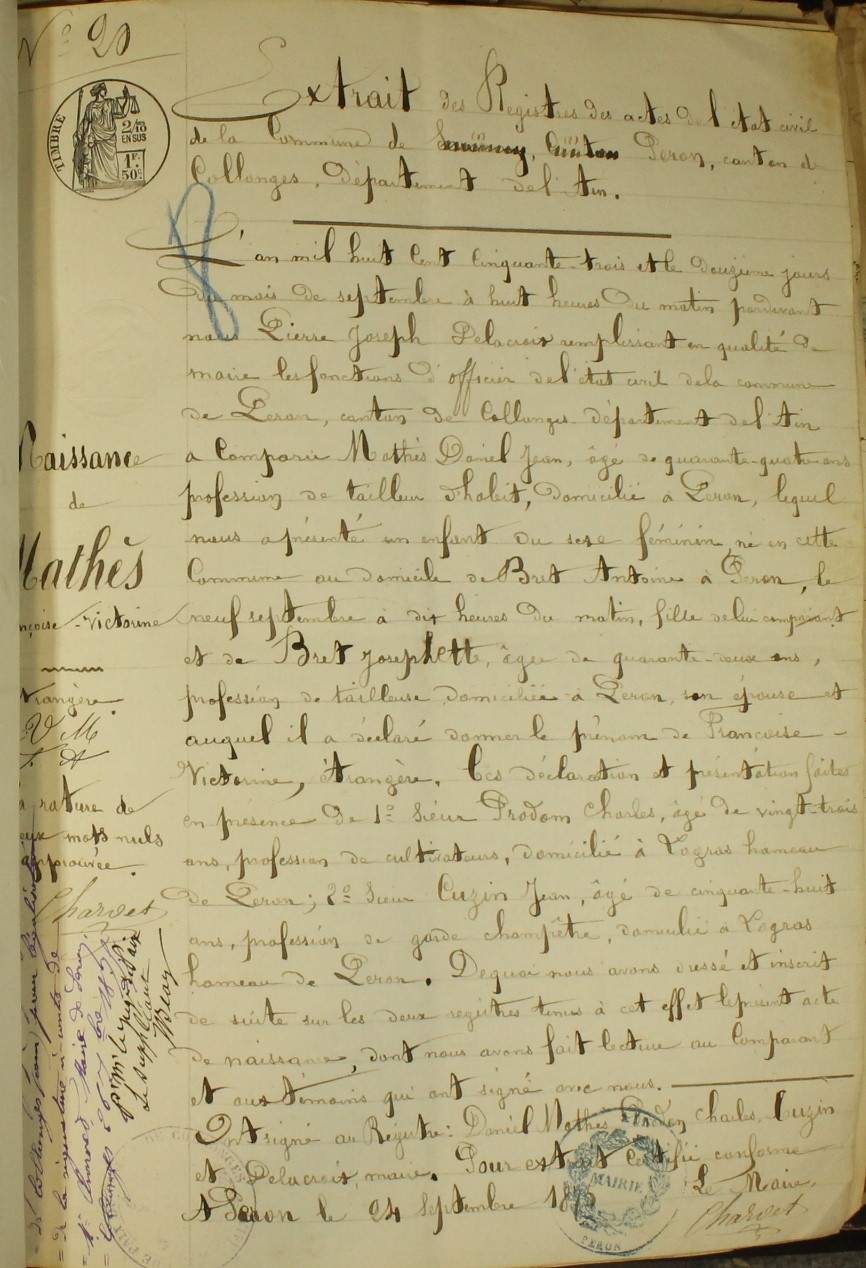 N° 20
TIMBRE
2/10
EN SUS
1F.
50c.
Extrait des Registres des actes de l'état civil
de la Commune de Peron, canton de
Collonges, Département de l'Ain.
L'an mil huit cent cinquante-trois et le douzième jours
du mois de septembre à huit heures du matin pardevant
nous Pierre Joseph Delacroix remplissant en qualité de
maire les fonctions d'officier de l'état civil de la commune
de Peron, canton de Collonges département de l'Ain
a comparu Mathès Daniel Jean, âge de quarante-quatre ans
profession de tailleur d'habit, domicilié à Peron, lequel
nous a présenté un enfant du sexe féminin, né en cette
Commune au domicile de Bret Antoine à Peron, le
neuf septembre à dix heures du matin, fille de lui comparant
et de Bret Josephette, âgée de quarante-deux ans,
profession de tailleuse domiciliée à Peron, son épouse et
auquel il a déclaré donner le prénom de Françoise-
Victorine, étrangère. Ces déclaration et présentation faites
en présence de 1° Sieur Prodon Charles, âgé de vingt-trois
ans, profession de cultivateurs, domicilié à Logras hameau
de Peron; 2° Sieur Cuzin Jean, âgé de cinquante-huit
ans, profession de garde champêtre, domicilié à Logras
hameau de Peron. De quoi nous avons dressé et inscrit
de suite sur les deux registres tenus à cet effet le présent acte
de naissance, dont nous avons fait lecture au Comparant
et aux témoins qui ont signé avec nous.
Ont signé au Registre: Daniel Mathès, Prodon Charles, Cuzin
et Delacroix, maire. Pour extrait certifié conforme
A Peron le 24 Septembre Le Maire,
Charvet
MAIRIE
PERON
Naissance
de
Mathès
nçoise-Victorine
trangère.
V M
rature de
eux mots nuls
approuvée.
Charvet
le Juge de Paix
Le Suppléant